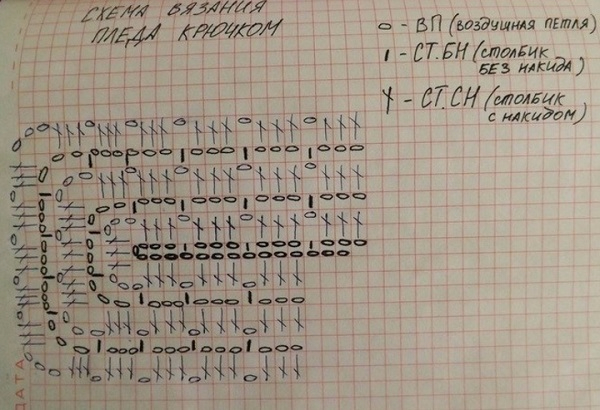 СХЕМА ВЯЗАНИЯ
ПЛЕДА КРЮЧКОМ
о - ВП (ВОЗДУШНАЯ ПЕТЛЯ)
ı - СТ.БН (СТОЛБИК
БЕЗ НАКИДА)
ϯ - СТ.СН (СТОЛБИК
С НАКИДОМ)
ДАТА